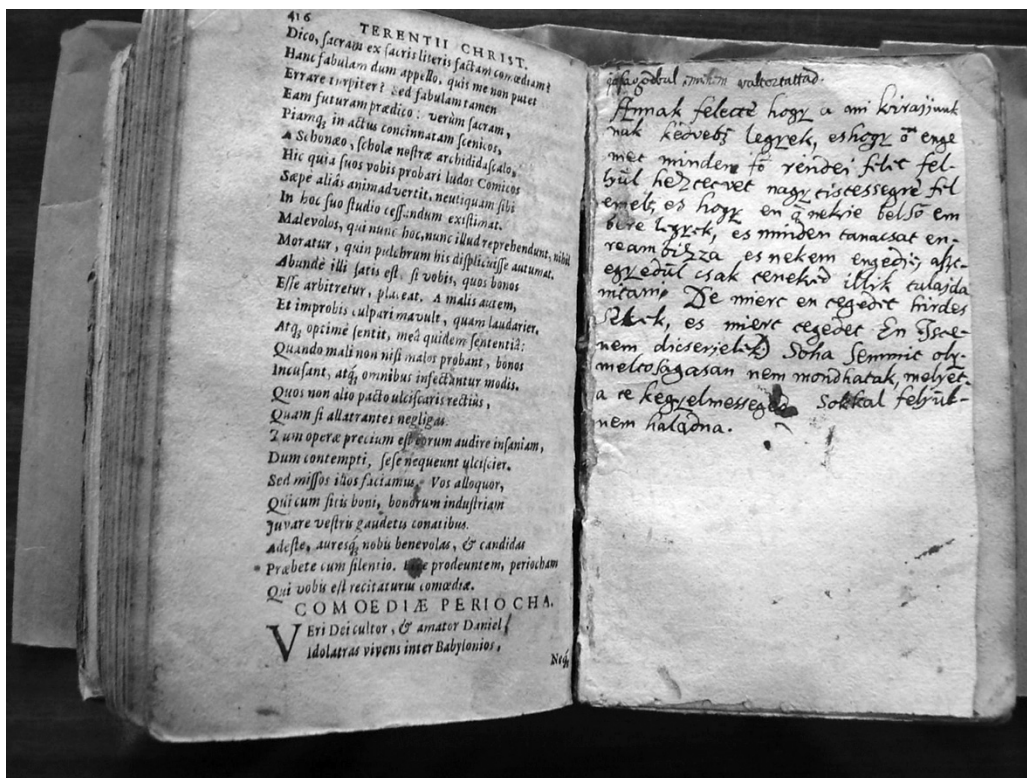 416
TERENTII CHRIST.
Dico, ſacram ex ſacris literis factam comœdiam?
Hanc fabulam dum appello, quis me non putet
Errare turpiter? Sed fabulam tamen
Eam futuram prædico: verùm ſacram,
Piamq; in actus concinnatam ſcenicos,
A Schonæo, ſcholæ noſtræ archididaſcalo,
Hic quia ſuos vobis probari ludos Comicos
Sæpe aliàs animadvertit, neutiquam ſibi
In hoc ſuo ſtudio ceſſandum exiſtimat.
Malevolos, qui nunc hoc, nunc illud reprehendunt, nihil
Moratur, quin pulchrum his diſplicuiſſe autumat.
Abundè illi ſatis eſt, ſi vobis, quos bonos
Eſſe arbitretur, placeat. A malis autem,
Et improbis culpari mavult, quam laudarier.
Atq; optimè ſentit, meâ quidem ſententiâ:
Quando mali non niſi malos probant, bonos
Incuſant, atq; omnibus inſectantur modis.
Quos non alio pacto ulciſcaris rectiùs,
Quam ſi allatrantes negligas.
Tum operæ precium eſt eorum audire inſaniam,
Dum contempti, ſeſe nequeunt ulciſcier.
Sed miſſos illos faciamus. Vos alloquor,
Qui cum ſitis boni, bonorum induſtriam
Juvare veſtris gaudetis conatibus.
Adeſte, auresq; nobis benevolas, & candidas
Præbete cum ſilentio. prodeuntem, periocham
Qui vobis eſt recitaturus comœdiæ.
COMOEDIÆ PERIOCHA.
VEri Dei cultor, & amator Daniel,
Idolatras vivens inter Babylonios,
Neq;
valtoztattad.
Annak felette hogy a mi kiralÿunk
nak kedvebẽ legyek, es hogy õ enge
met minden fõ rendei felit fel-
lÿûl heztetvet nagy tistessegre fel
emelt, es hogy en õ nekie belsõ em
bere legyek, es minden tanacsat en-
ream bizza es nekem engedi, aszt-
egyedûl csak teneked illik tulajda
nitani. De miert en tegedet hirdes
selek, es miert tegedet En Iste-
nem dicserjelek) Soha Semmit oly-
meltosagasan nem mondhatak, melyet-
a te kegyelmesseged Sokkal felyûl-
nem haladna.